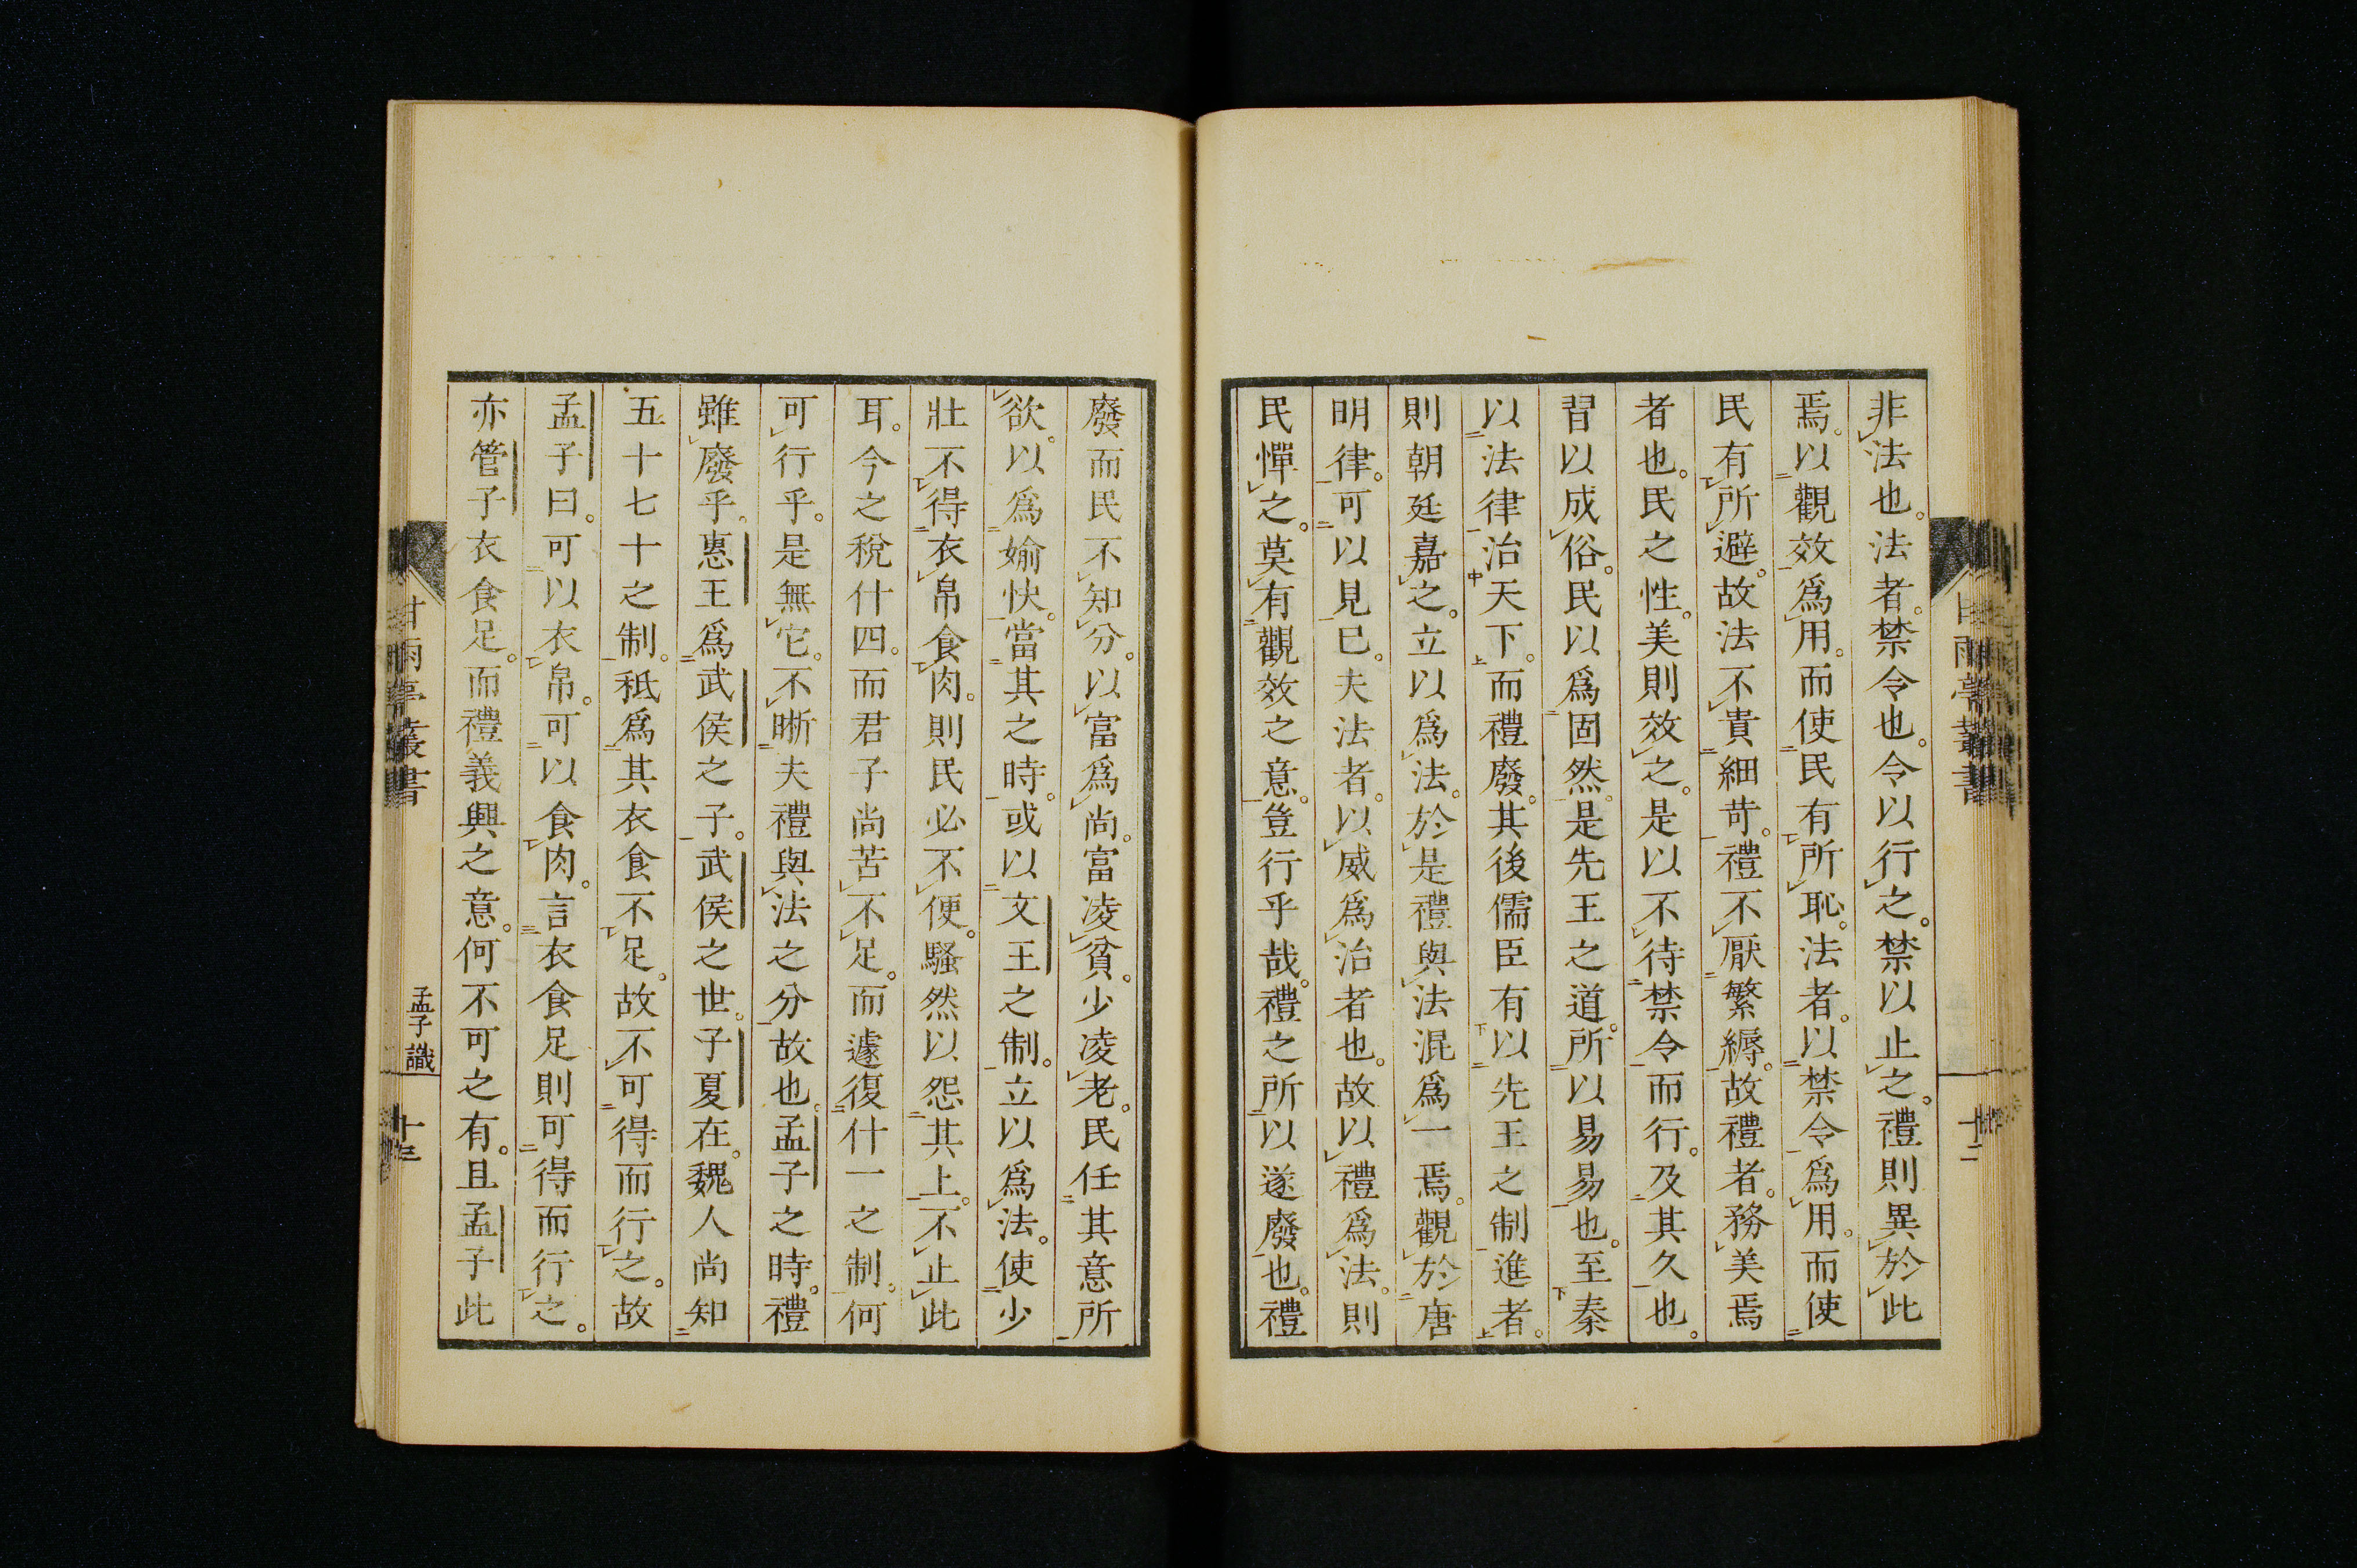 非法也。法者。禁令也。令以行之。禁以止之。禮則異於此
焉。以觀效爲用。而使民有所恥。法者。以禁令爲用。而使
民有所避。故法不貴細苛。禮不厭繁縟。故禮者。務美焉
者也。民之性。美則效之。是以不待禁令而行。及其久也。
習以成俗。民以爲固然。是先王之道。所以易易也。至秦
以法律治天下。而禮廢。其後儒臣有以先王之制進者。
則朝廷嘉之。立以爲法。於是禮與法混爲一焉。觀於唐
明律。可以見已。夫法者。以威爲治者也。故以禮爲法。則
民憚之。莫有觀效之意。豈行乎哉。禮之所以遂廢也。禮
廢而民不知分。以富爲尚。富凌貧。少凌老。民任其意所
欲。以爲媮快。當其之時。或以文王之制。立以爲法。使少
壯不得衣帛食肉。則民必不便。騷然以怨其上。不止此
耳。今之稅什四。而君子尚苦不足。而遽復什一之制。何
可行乎。是無它。不晰夫禮與法之分故也。孟子之時。禮
雖廢乎。惠王爲武侯之子。武侯之世。子夏在。魏人尚知
五十七十之制。秪爲其衣食不足。故不可得而行之。故
孟子曰。可以衣帛。可以食肉。言衣食足則可得而行之。
亦管子衣食足。而禮義興之意。何不可之有。且孟子此
甘雨亭叢書
孟子識
十三